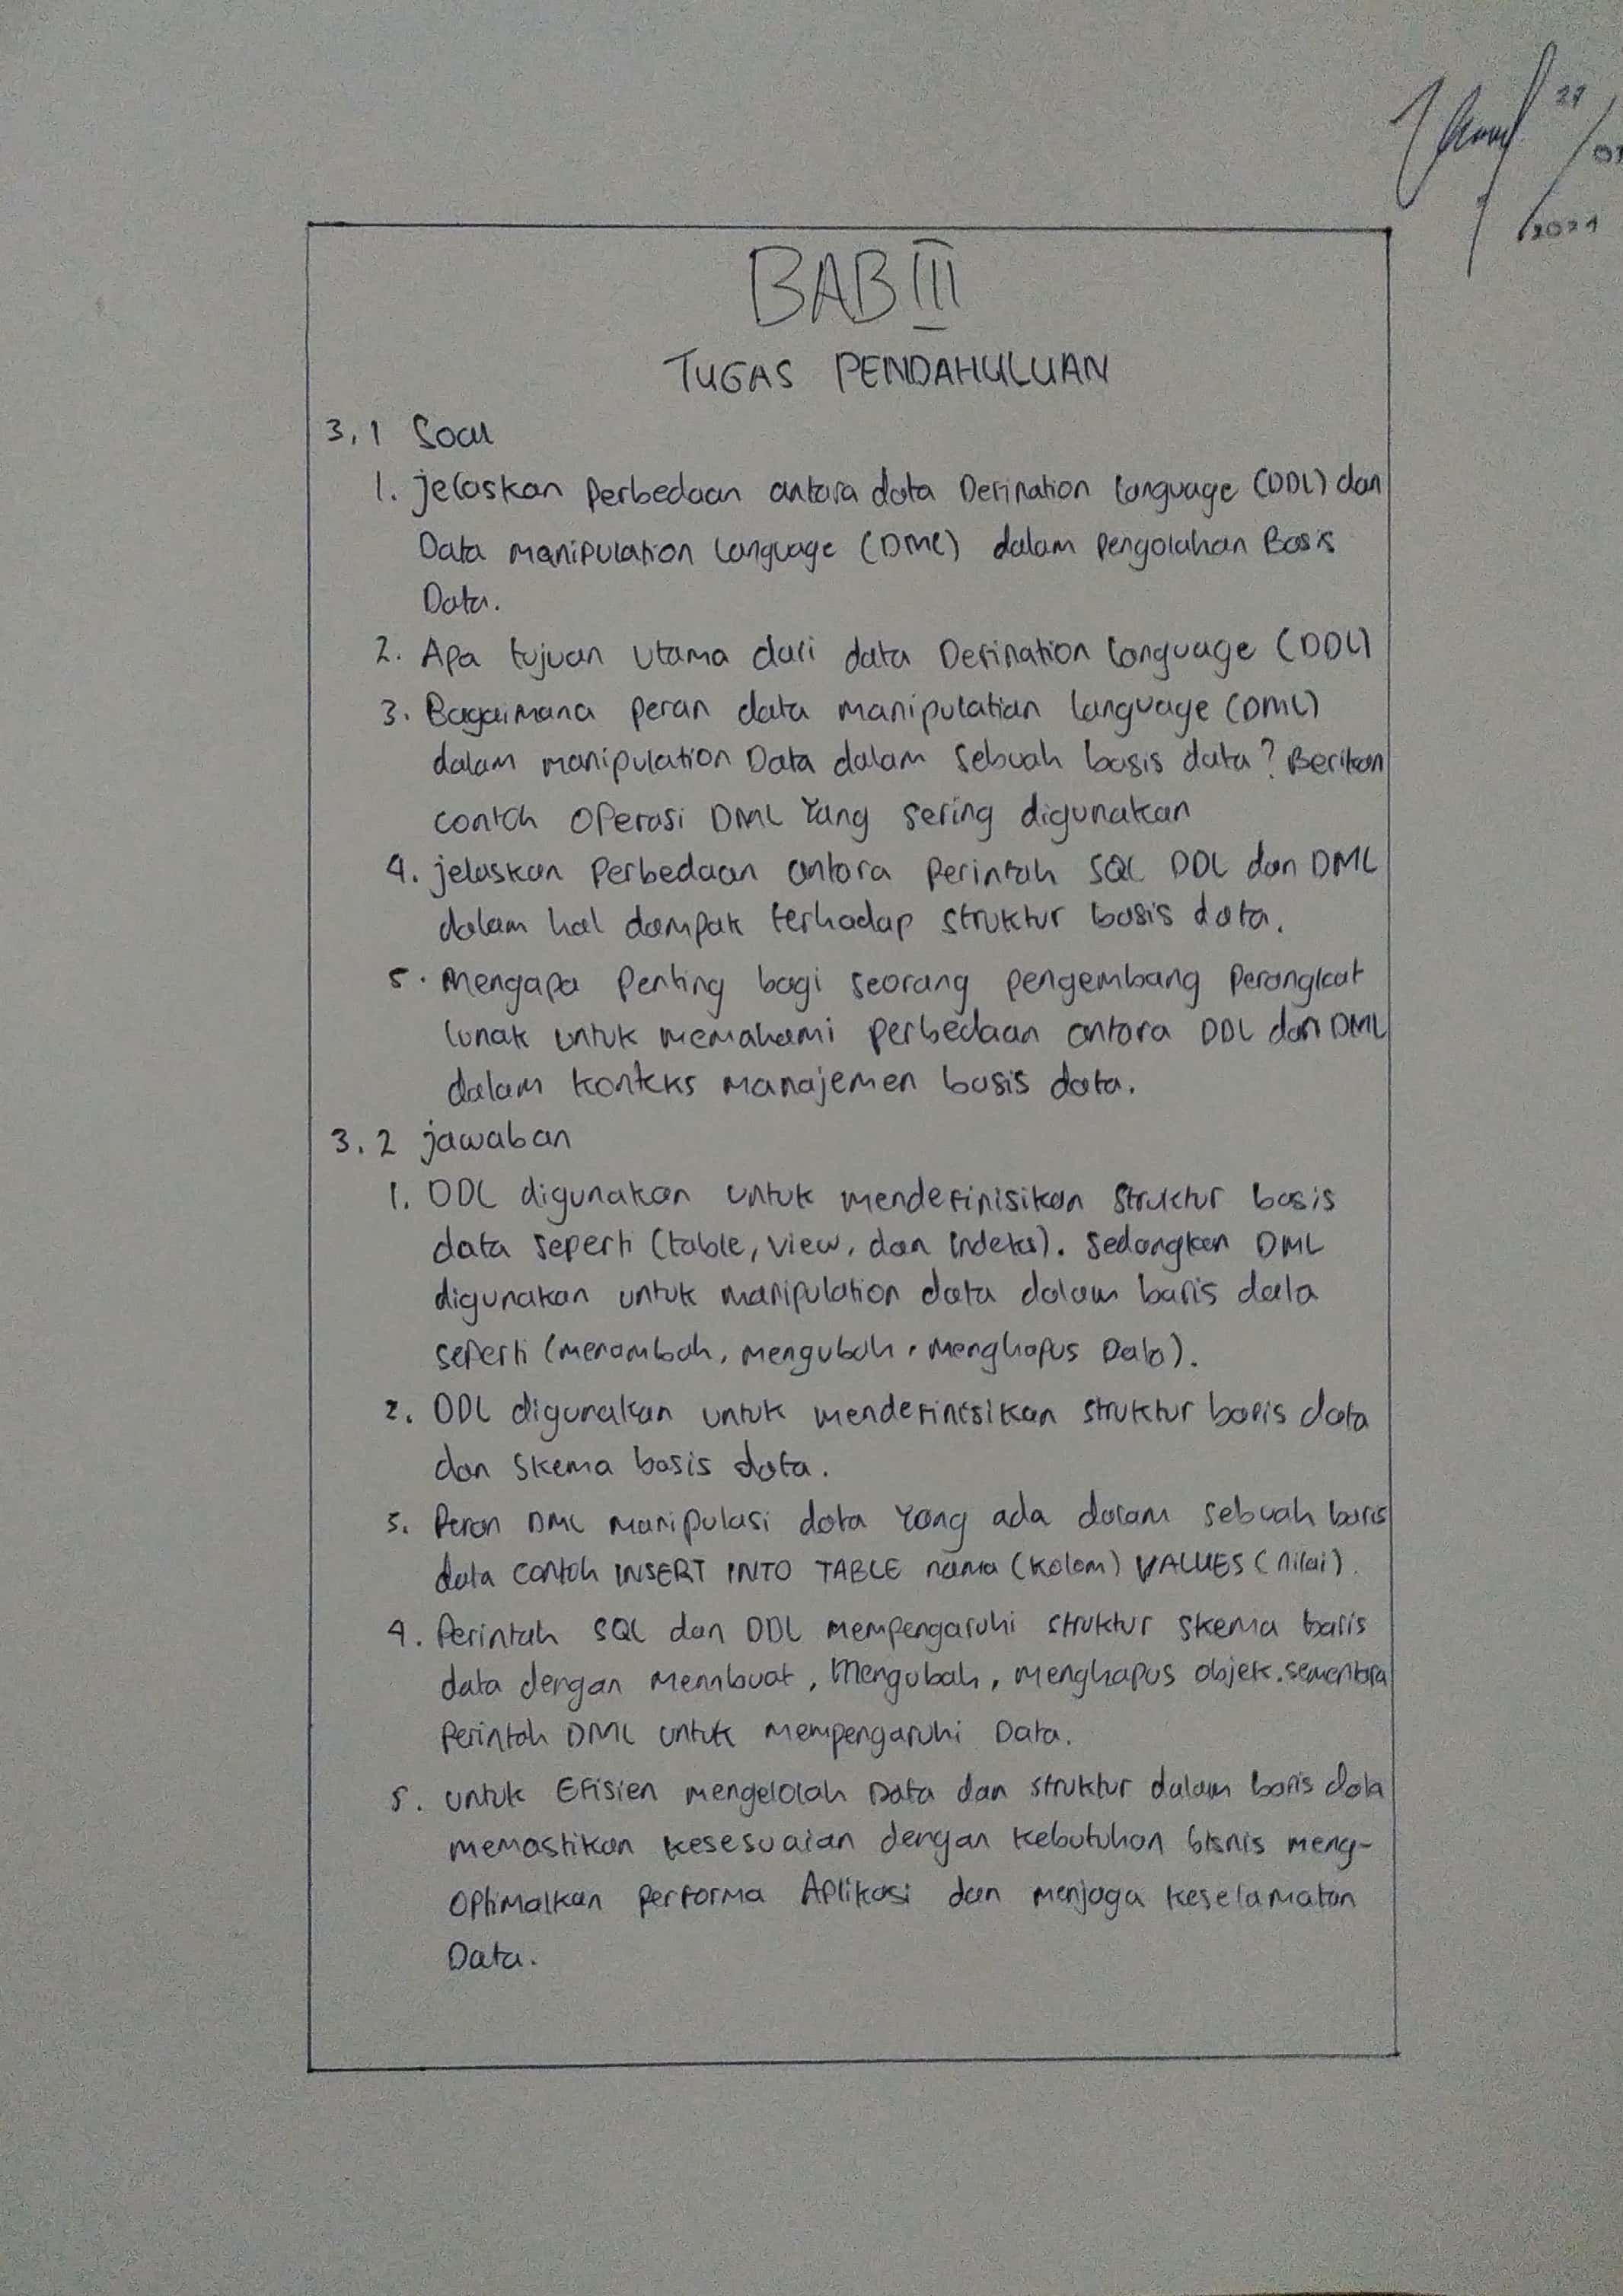 27
/03
2024
BAB III
TUGAS PENDAHULUAN
3.1 Soal
1. jelaskan Perbedaan antara data Defination language (DDL) dan
Data manipulation language (DML) dalam Pengolahan Basis
Data.
2. Apa tujuan utama dari data Defination language (DDL)
3. Bagaimana peran data manipulation language (DML)
dalam manipulation Data dalam sebuah basis data? Berikan
contoh Operasi DML Yang sering digunakan
4. jelaskan Perbedaan antara Perintah SQL DDL dan DML
dalam hal dampak terhadap struktur basis data.
5. mengapa Penting bagi seorang pengembang Perangkat
lunak untuk memahami perbedaan antara DDL dan DML
dalam konteks manajemen basis data.
3.2 jawaban
1. DDL digunakan untuk mendefinisikan struktur basis
data seperti (table, view, dan indeks). Sedangkan DML
digunakan untuk manipulation data dalam baris data
seperti (menambah, mengubah, menghapus Data).
2. DDL digunakan untuk mendefinisikan struktur baris data
dan skema basis data.
3. Peran DML manipulasi data Yang ada dalam sebuah baris
data contoh INSERT INTO TABLE nama (kolom) VALUES (nilai).
4. Perintah SQL dan DDL mempengaruhi struktur skema baris
data dengan membuat, mengubah, menghapus objek. sementara
Perintah DML untuk mempengaruhi Data.
5. untuk Efisien mengelolah Data dan struktur dalam baris data
memastikan kesesuaian dengan kebutuhan bisnis meng-
optimalkan performa Aplikasi dan menjaga keselamatan
Data.